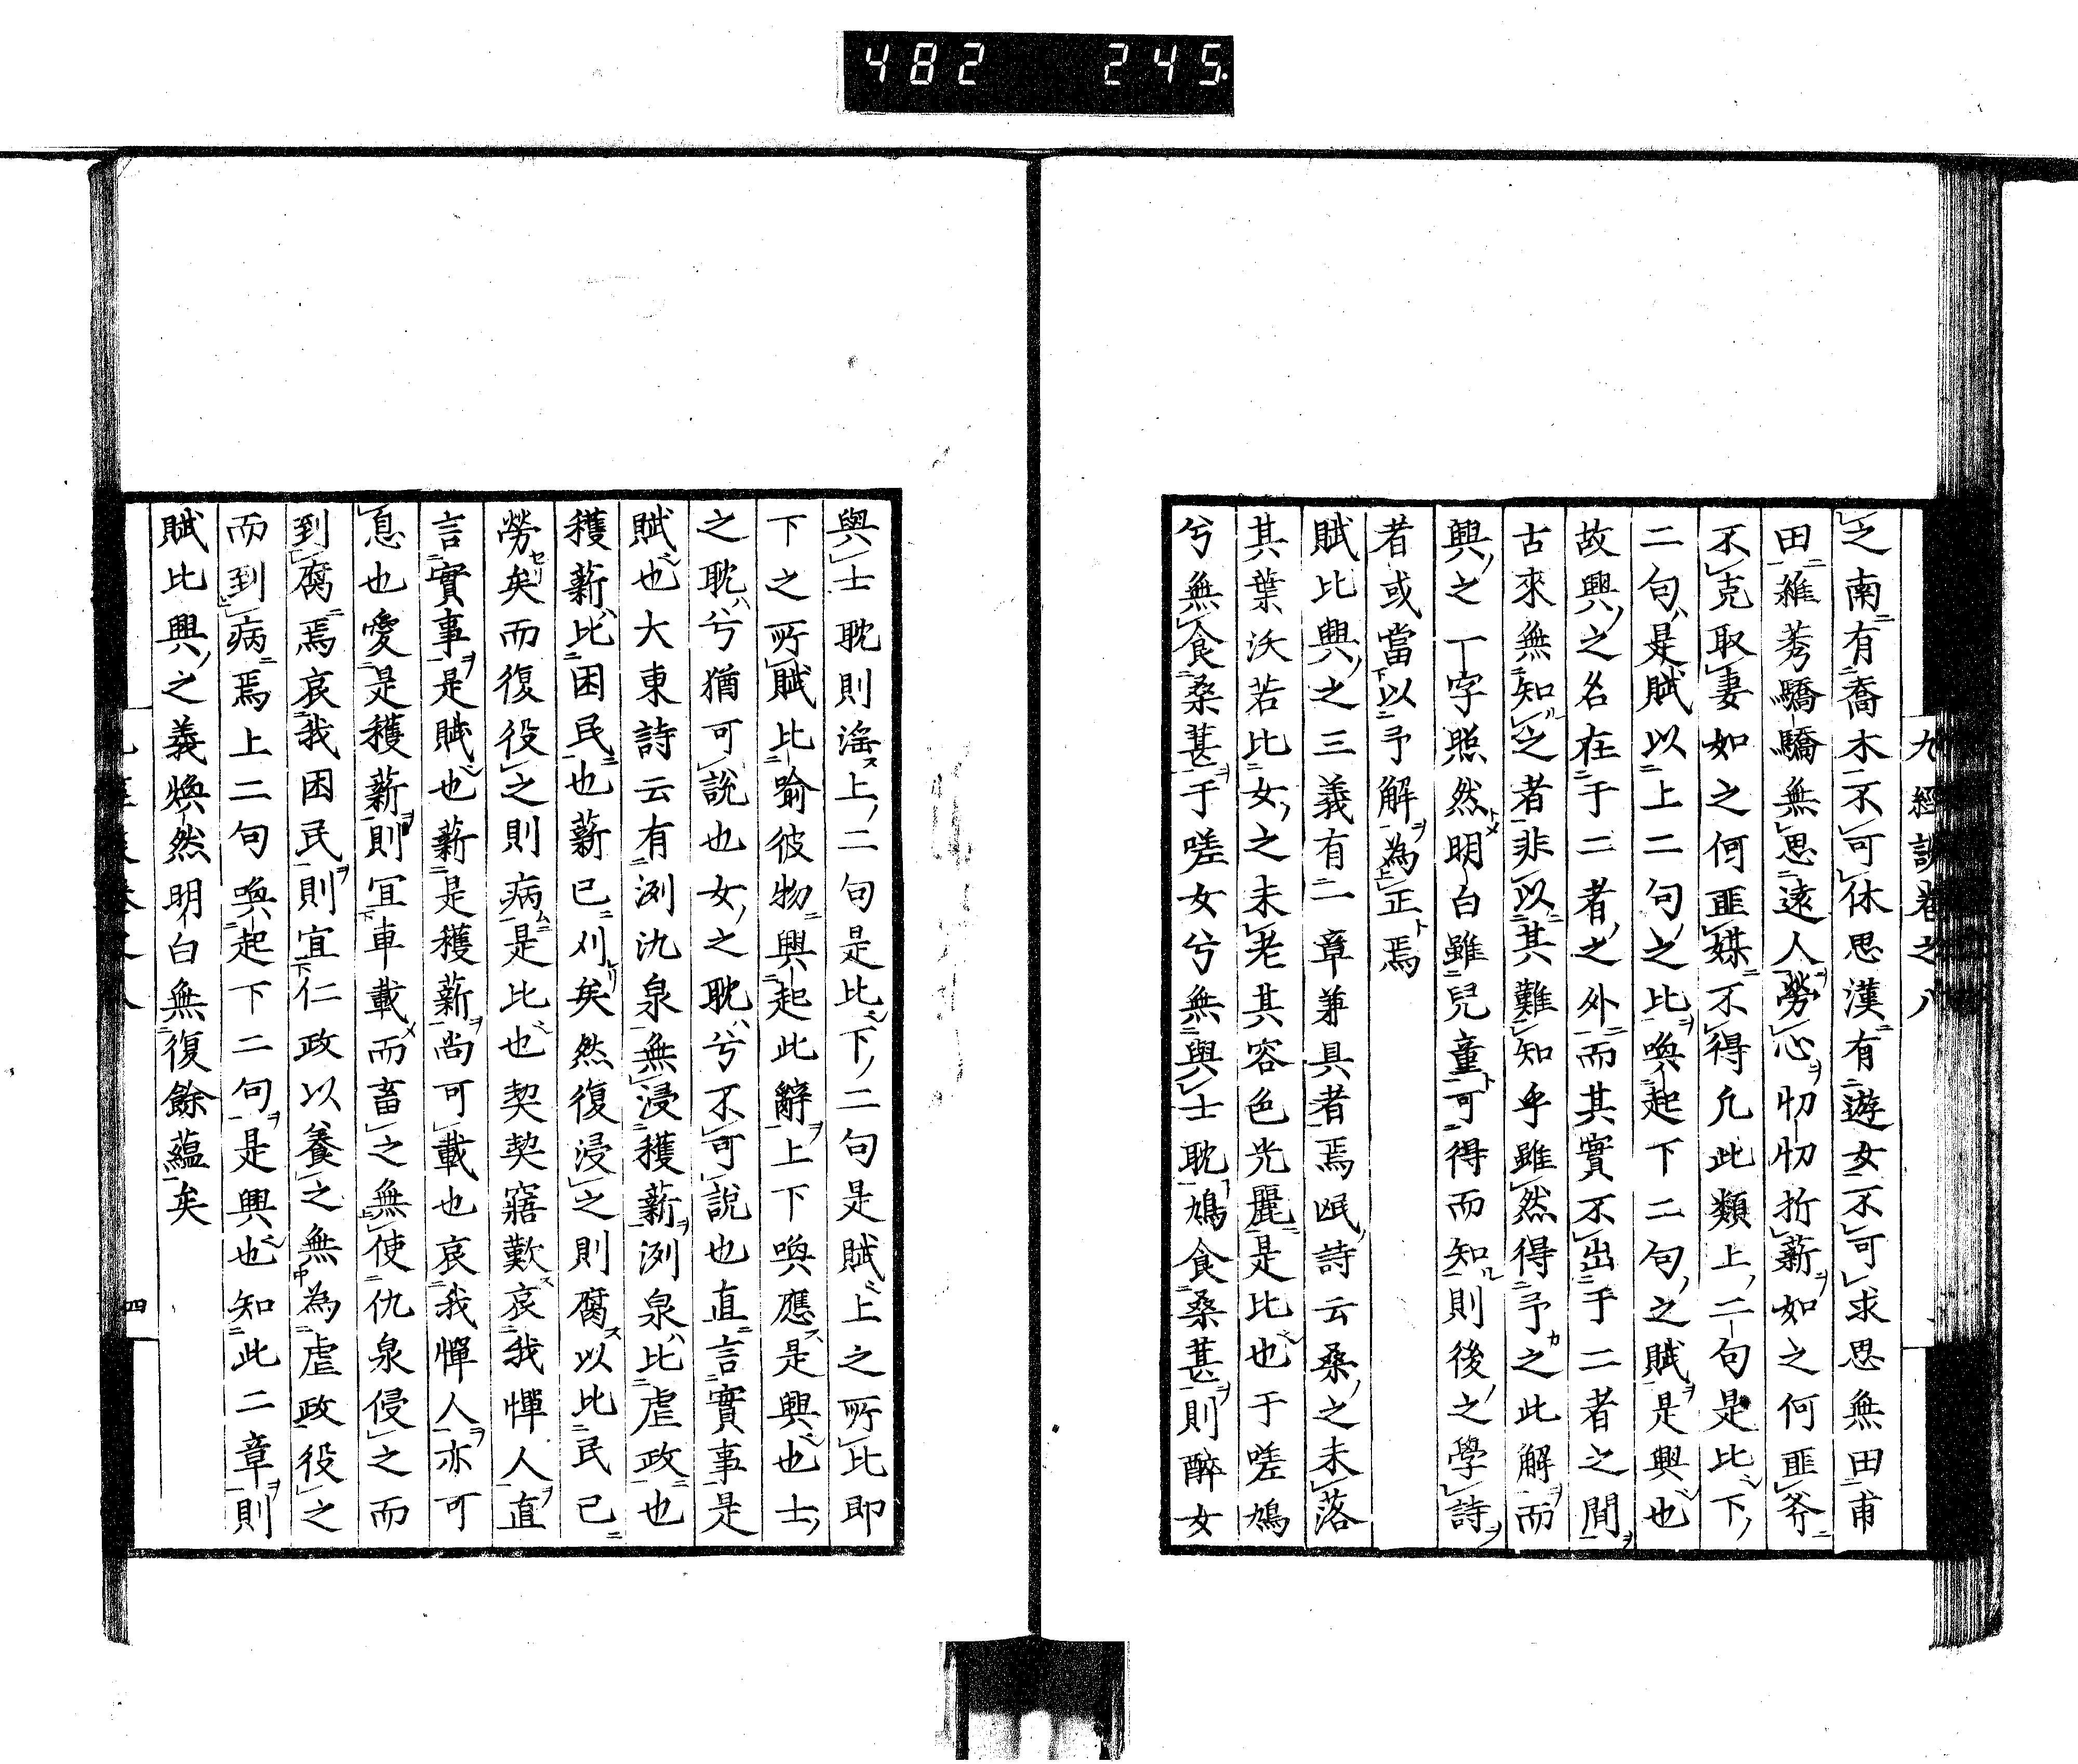 482 245
九經談卷之八
之南有喬木不可休思漢有遊女不可求思無田甫
田維莠驕驕無思遠人勞心忉忉析薪如之何匪斧
不克取妻如之何匪媒不得凡此類上二句是比下
二句是賦以上二句之比喚起下二句之賦是興也
故興之名在于二者之外而其實不出于二者之間
古來無知之者非以其難知乎雖然得予之此解而
興之一字照然明白雖兒童可得而知則後之學詩
者或當以予解為正焉
賦比興之三義有二章兼具者焉氓詩云桑之未落
其葉沃若比女之未老其容色光麗是比也于嗟鳩
兮無食桑葚于嗟女兮無與士耽鳩食桑葚則醉女
與士耽則淫上二句是比下二句是賦上之所比即
下之所賦比喻彼物興起此辭上下喚應是興也士
之耽兮猶可說也女之耽兮不可說也直言實事是
賦也大東詩云有洌氿泉無浸穫薪洌泉比虐政也
穫薪比困民也薪已刈矣然復浸之則腐以比民已
勞矣而復役之則病是比也契契寤歎哀我憚人直
言實事是賦也薪是穫薪尚可載也哀我憚人亦可
息也愛是穫薪則宜車載而畜之無使仇泉侵之而
到腐焉哀我困民則宜仁政以養之無為虐政役之
而到病焉上二句喚起下二句是興也知此二章則
賦比興之義煥然明白無復餘蘊矣
四